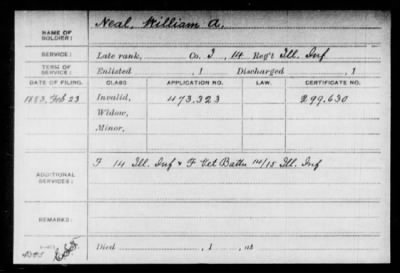 NAME OF SOLDIER: Neal, William A.
SERVICE: Late rank, Co. I, 14 Reg't Ill. Inf.
TERM OF SERVICE: Enlisted , 1 Discharged , 1
DATE OF FILING. CLASS. APPLICATION NO. LAW. CERTIFICATE NO.
1883, Feb 23 Invalid, 473.323 299.630
Widow,
Minor,
ADDITIONAL SERVICES: F 14 Ill. Inf & F Vet Battn 14/15 Ill. Inf
REMARKS:
Died , 1 , at